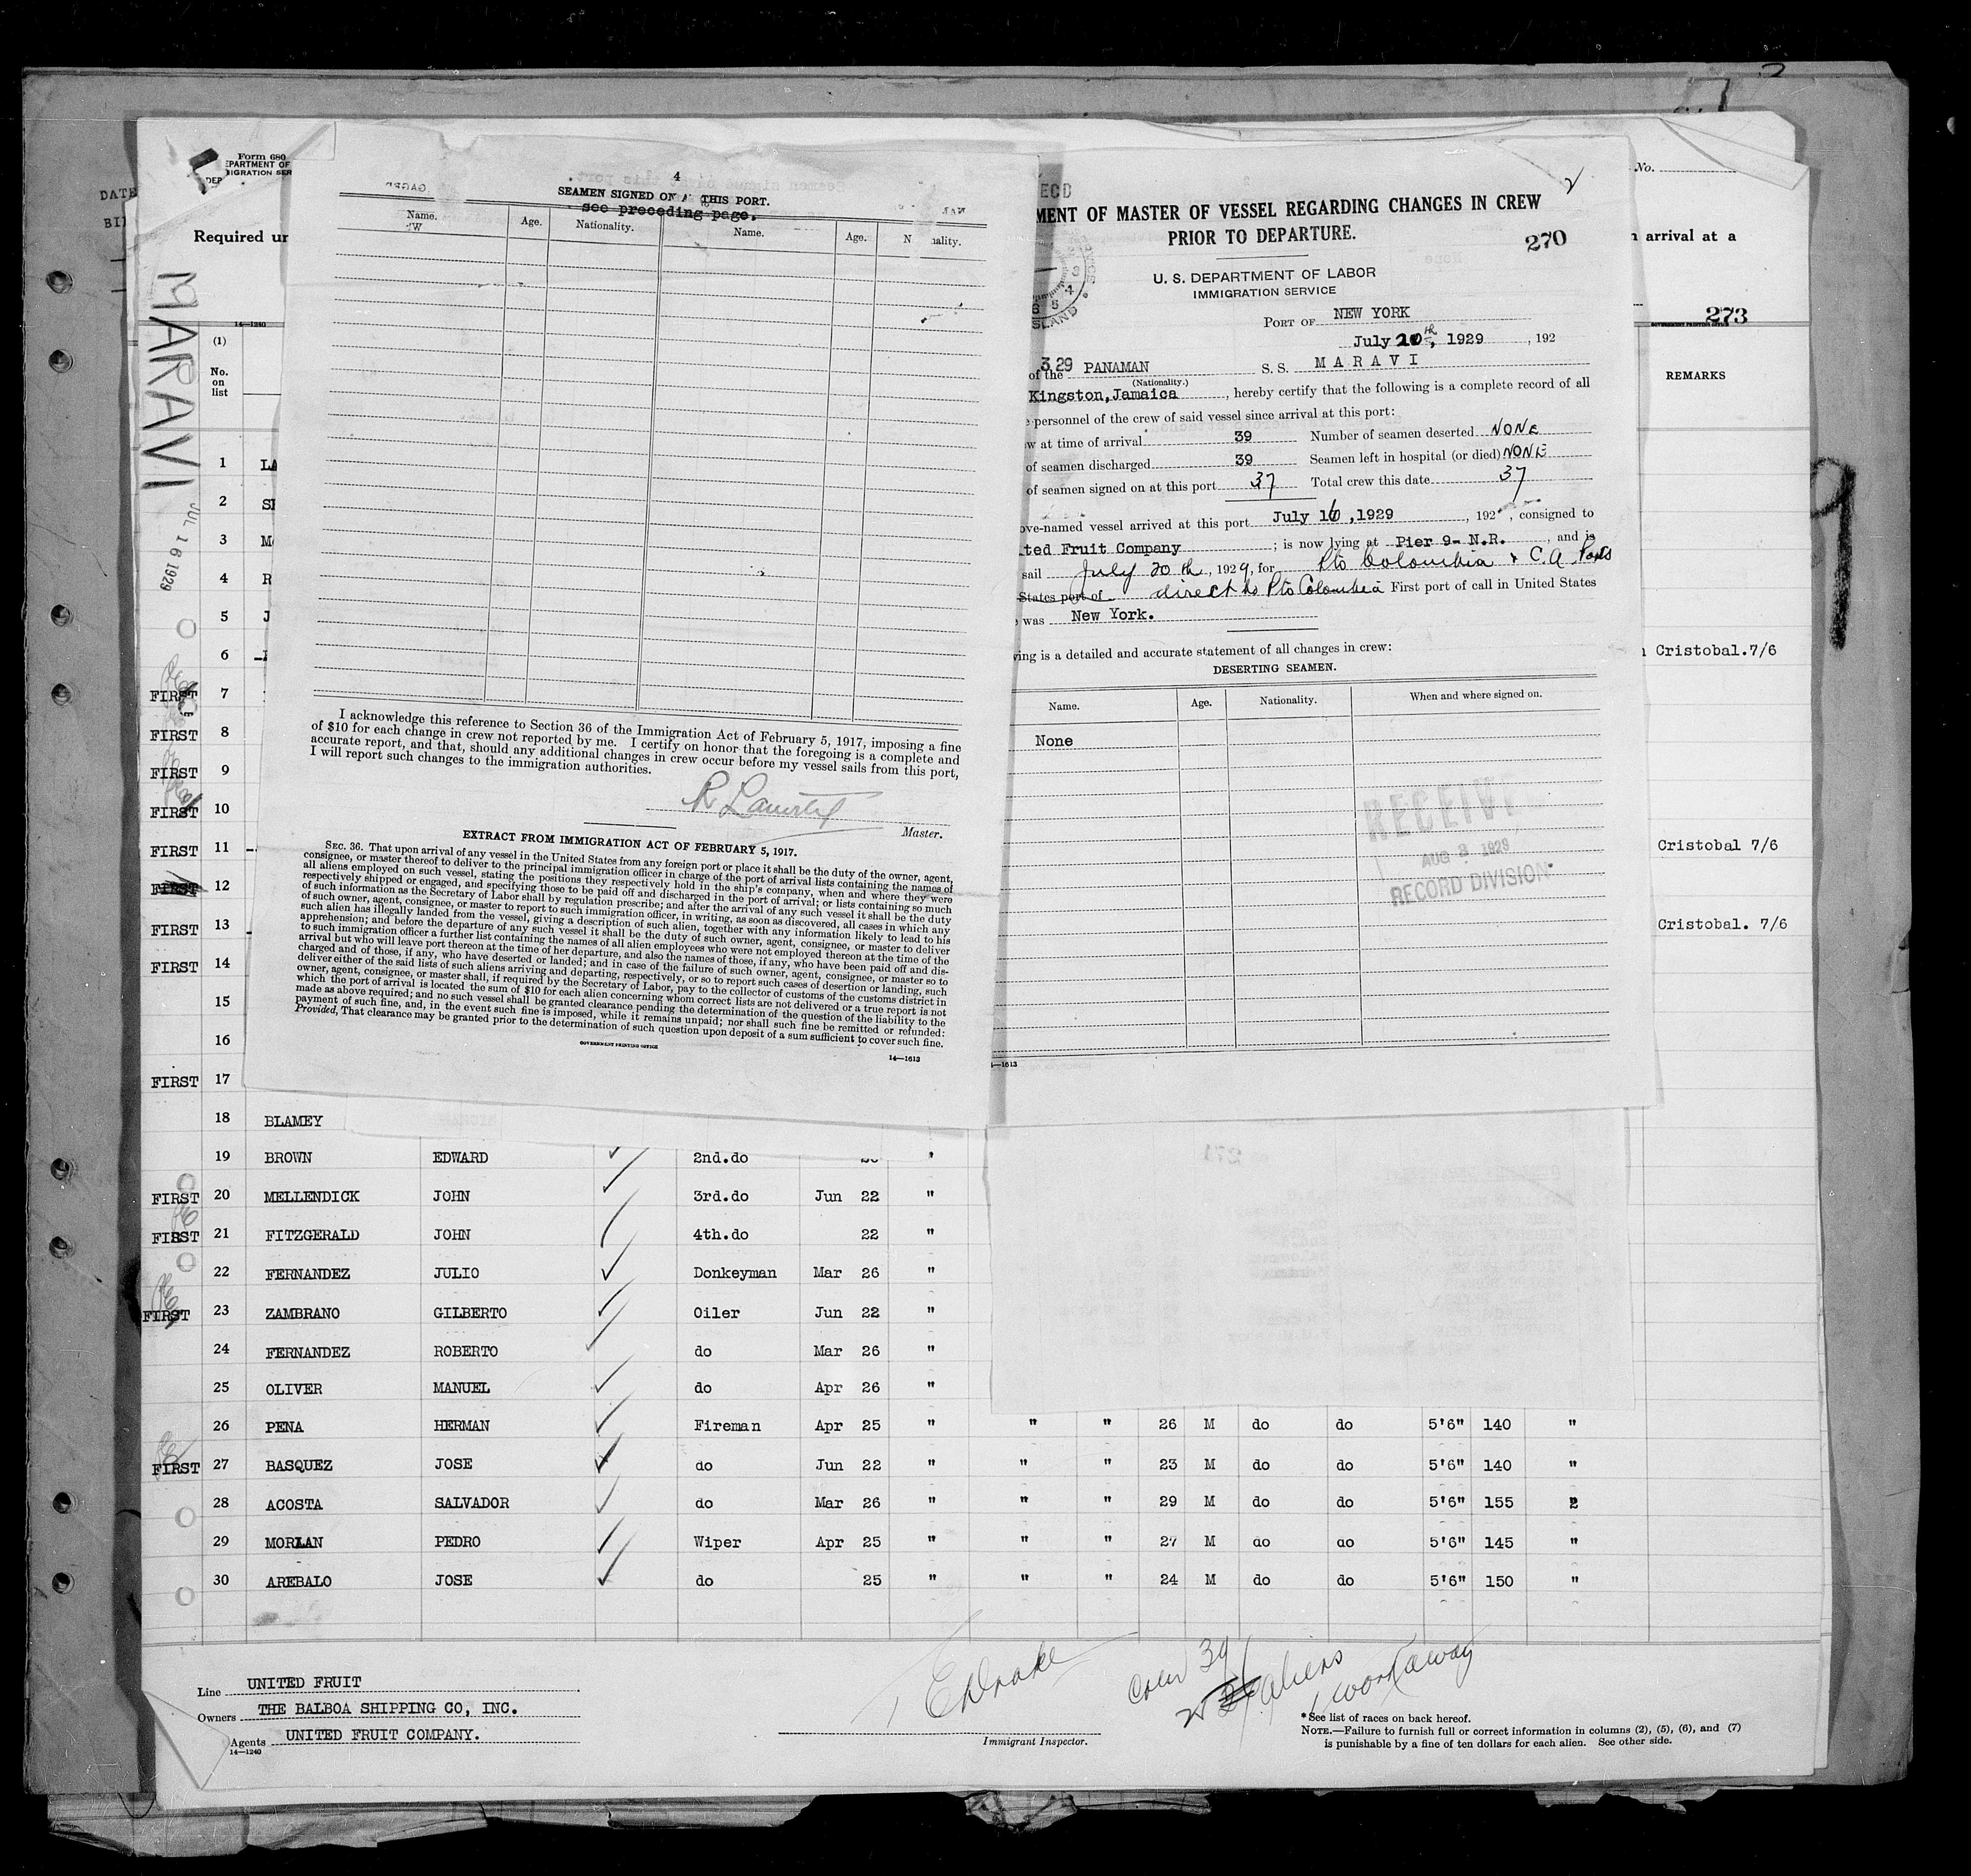 Form 680
EPARTMENT OF
MIGRATION SER
DATE
BI
Required ur
MARAVI
JUL 16 1929
14—1240
(1)
No.
on
list
4
SEAMEN SIGNED ON THIS PORT.
see preceding page.
Name. Age. Nationality. Name. Age. N ality.
I acknowledge this reference to Section 36 of the Immigration Act of February 5, 1917, imposing a fine
of $10 for each change in crew not reported by me. I certify on honor that the foregoing is a complete and
accurate report, and that, should any additional changes in crew occur before my vessel sails from this port,
I will report such changes to the immigration authorities.
Master.
EXTRACT FROM IMMIGRATION ACT OF FEBRUARY 5, 1917.
SEC. 36. That upon arrival of any vessel in the United States from any foreign port or place it shall be the duty of the owner, agent,
consignee, or master thereof to deliver to the principal immigration officer in charge of the port of arrival lists containing the names of
all aliens employed on such vessel, stating the positions they respectively hold in the ship's company, when and where they were
respectively shipped or engaged, and specifying those to be paid off and discharged in the port of arrival; or lists containing so much
of such information as the Secretary of Labor shall by regulation prescribe; and after the arrival of any such vessel it shall be the duty
of such owner, agent, consignee, or master to report to such immigration officer, in writing, as soon as discovered, all cases in which any
such alien has illegally landed from the vessel, giving a description of such alien, together with any information likely to lead to his
apprehension; and before the departure of any such vessel it shall be the duty of such owner, agent, consignee, or master to deliver
to such immigration officer a further list containing the names of all alien employees who were not employed thereon at the time of the
arrival but who will leave port thereon at the time of her departure, and also the names of those, if any, who have been paid off and dis-
charged and of those, if any, who have deserted or landed; and in case of the failure of such owner, agent, consignee, or master so to
deliver either of the said lists of such aliens arriving and departing, respectively, or so to report such cases of desertion or landing, such
owner, agent, consignee, or master shall, if required by the Secretary of Labor, pay to the collector of customs of the customs district in
which the port of arrival is located the sum of $10 for each alien concerning whom correct lists are not delivered or a true report is not
made as above required; and no such vessel shall be granted clearance pending the determination of the question of the liability to the
payment of such fine, and, in the event such fine is imposed, while it remains unpaid; nor shall such fine be remitted or refunded:
Provided, That clearance may be granted prior to the determination of such question upon deposit of a sum sufficient to cover such fine.
GOVERNMENT PRINTING OFFICE
14—1613
ECD
MENT OF MASTER OF VESSEL REGARDING CHANGES IN CREW
PRIOR TO DEPARTURE.
270
U. S. DEPARTMENT OF LABOR
IMMIGRATION SERVICE
PORT OF NEW YORK
July 20th, 1929, 192
of the 329 PANAMAN S. S. MARAVI
(Nationality.)
Kingston,Jamaica, hereby certify that the following is a complete record of all
e personnel of the crew of said vessel since arrival at this port:
w at time of arrival 39 Number of seamen deserted NONE
of seamen discharged 39 Seamen left in hospital (or died) NONE
of seamen signed on at this port 37 Total crew this date 37
ove-named vessel arrived at this port July 16,1929, 192 , consigned to
ted Fruit Company ; is now lying at Pier 9- N.R. , and is
sail July 20th, 1929, for Pto Colombia & C.A. Ports
States port of direct to Pto Colombia First port of call in United States
was New York.
ving is a detailed and accurate statement of all changes in crew:
DESERTING SEAMEN.
Name. Age. Nationality. When and where signed on.
None
RECEIVE
AUG 3 1929
RECORD DIVISION
—1613
No.
n arrival at a
273
GOVERNMENT PRINTING OFFICE
REMARKS
1 LA
2 SH
3 M
4 R
5 J
6 Cristobal.7/6
FIRST 7
FIRST 8
FIRST 9
FIRST 10
FIRST 11 Cristobal 7/6
FIRST 12
FIRST 13 Cristobal. 7/6
FIRST 14
15
16
FIRST 17
18 BLAMEY
19 BROWN EDWARD 2nd.do "
FIRST 20 MELLENDICK JOHN 3rd.do Jun 22 "
FISST 21 FITZGERALD JOHN 4th.do 22 "
22 FERNANDEZ JULIO Donkeyman Mar 26 "
FIRST 23 ZAMBRANO GILBERTO Oiler Jun 22 "
24 FERNANDEZ ROBERTO do Mar 26 "
25 OLIVER MANUEL do Apr 26 "
26 PENA HERMAN Fireman Apr 25 " " " 26 M do do 5'6" 140 "
FIRST 27 BASQUEZ JOSE do Jun 22 " " " 23 M do do 5'6" 140 "
28 ACOSTA SALVADOR do Mar 26 " " " 29 M do do 5'6" 155 2
29 MORLAN PEDRO Wiper Apr 25 " " " 27 M do do 5'6" 145 "
30 AREBALO JOSE do 25 " " " 24 M do do 5'6" 150 "
Line UNITED FRUIT
Owners THE BALBOA SHIPPING CO, INC.
Agents UNITED FRUIT COMPANY.
14—1240
E Drake
Immigrant Inspector.
Crew 39
aliens
1 workaway
* See list of races on back hereof.
NOTE.—Failure to furnish full or correct information in columns (2), (5), (6), and (7)
is punishable by a fine of ten dollars for each alien. See other side.